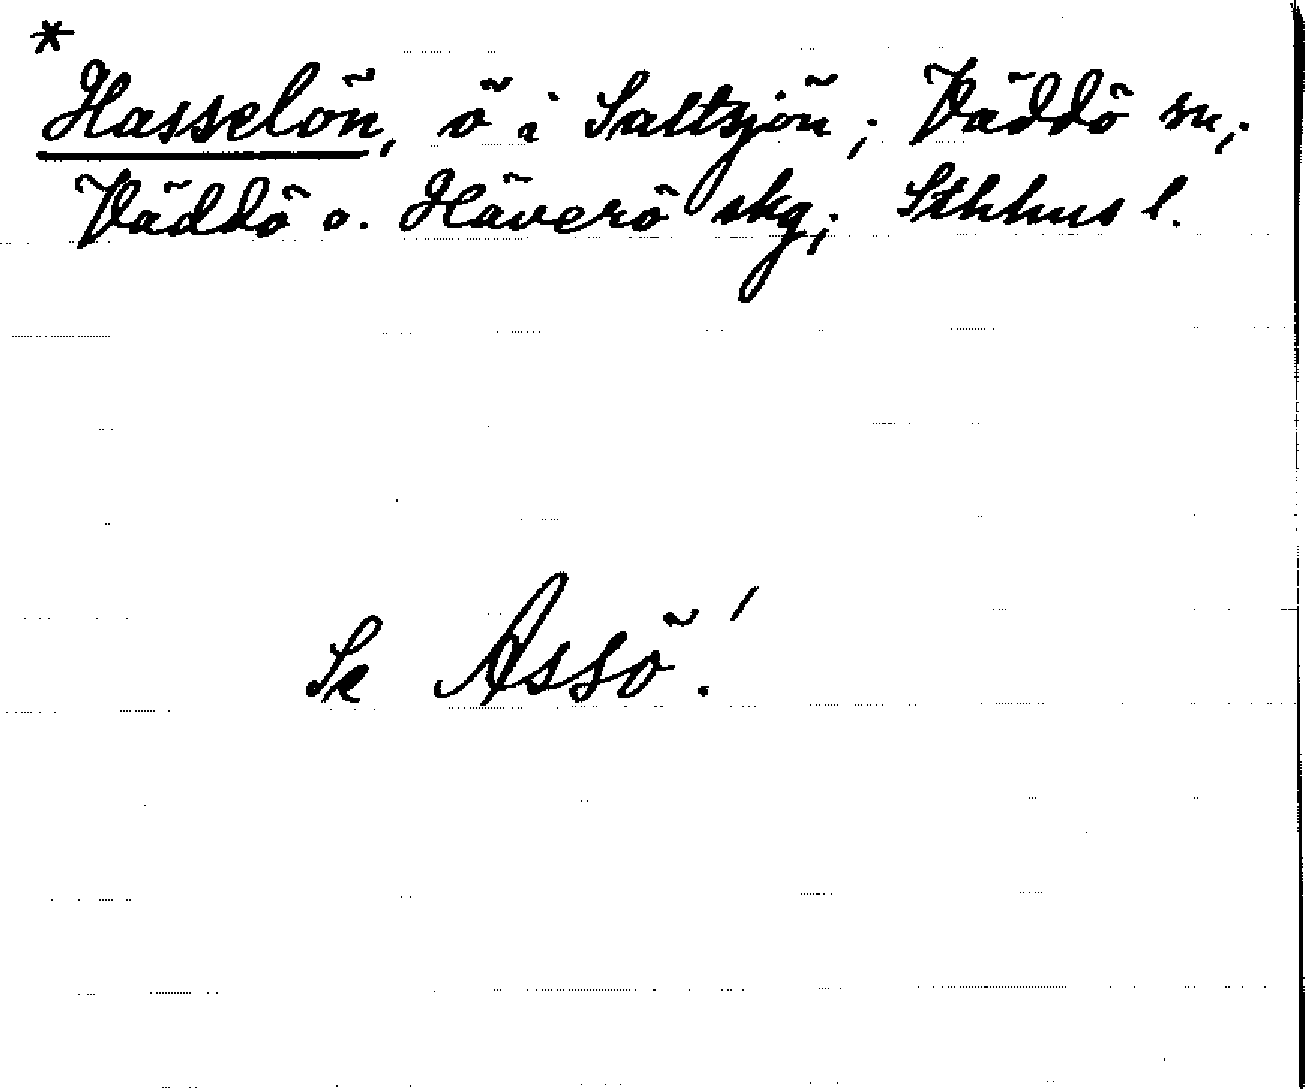 *
Hasselön, ö i Saltsjön; Väddö sn;
Väddö o. Häverö skg; Sthhus l.
Se Assö!